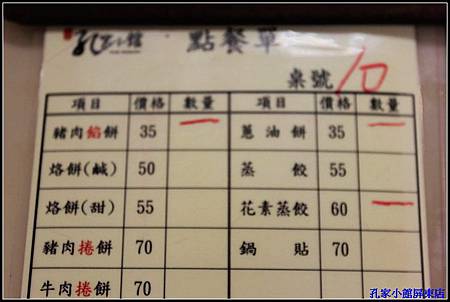 孔家小館 點餐單
桌號 10
項目 價格 數量 項目 價格 數量
豬肉餡餅 35 蔥油餅 35
烙餅(鹹) 50 蒸餃 55
烙餅(甜) 55 花素蒸餃 60
豬肉捲餅 70 鍋貼 70
牛肉捲餅 70
孔家小館屏東店